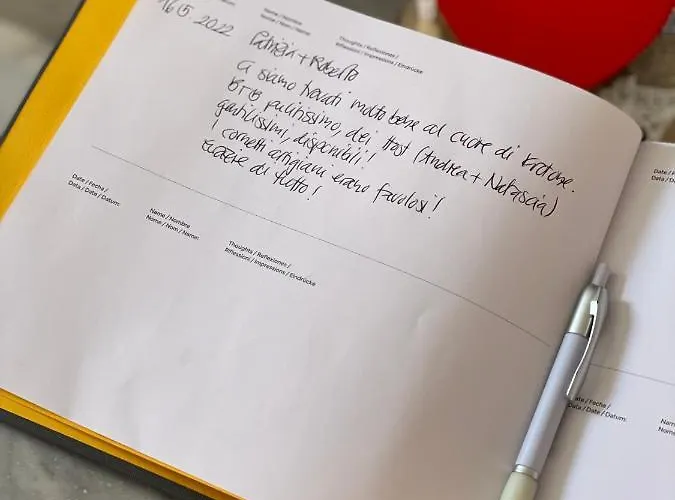 Name / Nombre
Nome / Nom / Name:
Thoughts / Reflexiones /
Riflessioni / Impressions / Eindrücke
16.5.2022
Patrizia + Roberto
Ci siamo trovati molto bene al cuore di Crotone.
B&B pulitissimo, dei host (Andrea + Natascia)
gentilissimi, disponibili!
I cornetti artigiani erano favolosi!
Grazie di tutto!
Date / Fecha /
Data / Date / Datum:
Name / Nombre
Nome / Nom / Name:
Thoughts / Reflexiones /
Riflessioni / Impressions / Eindrücke
Date / Fe
Data / D
Date / Fecha /
Data / Date / Datum:
Nam
Nome